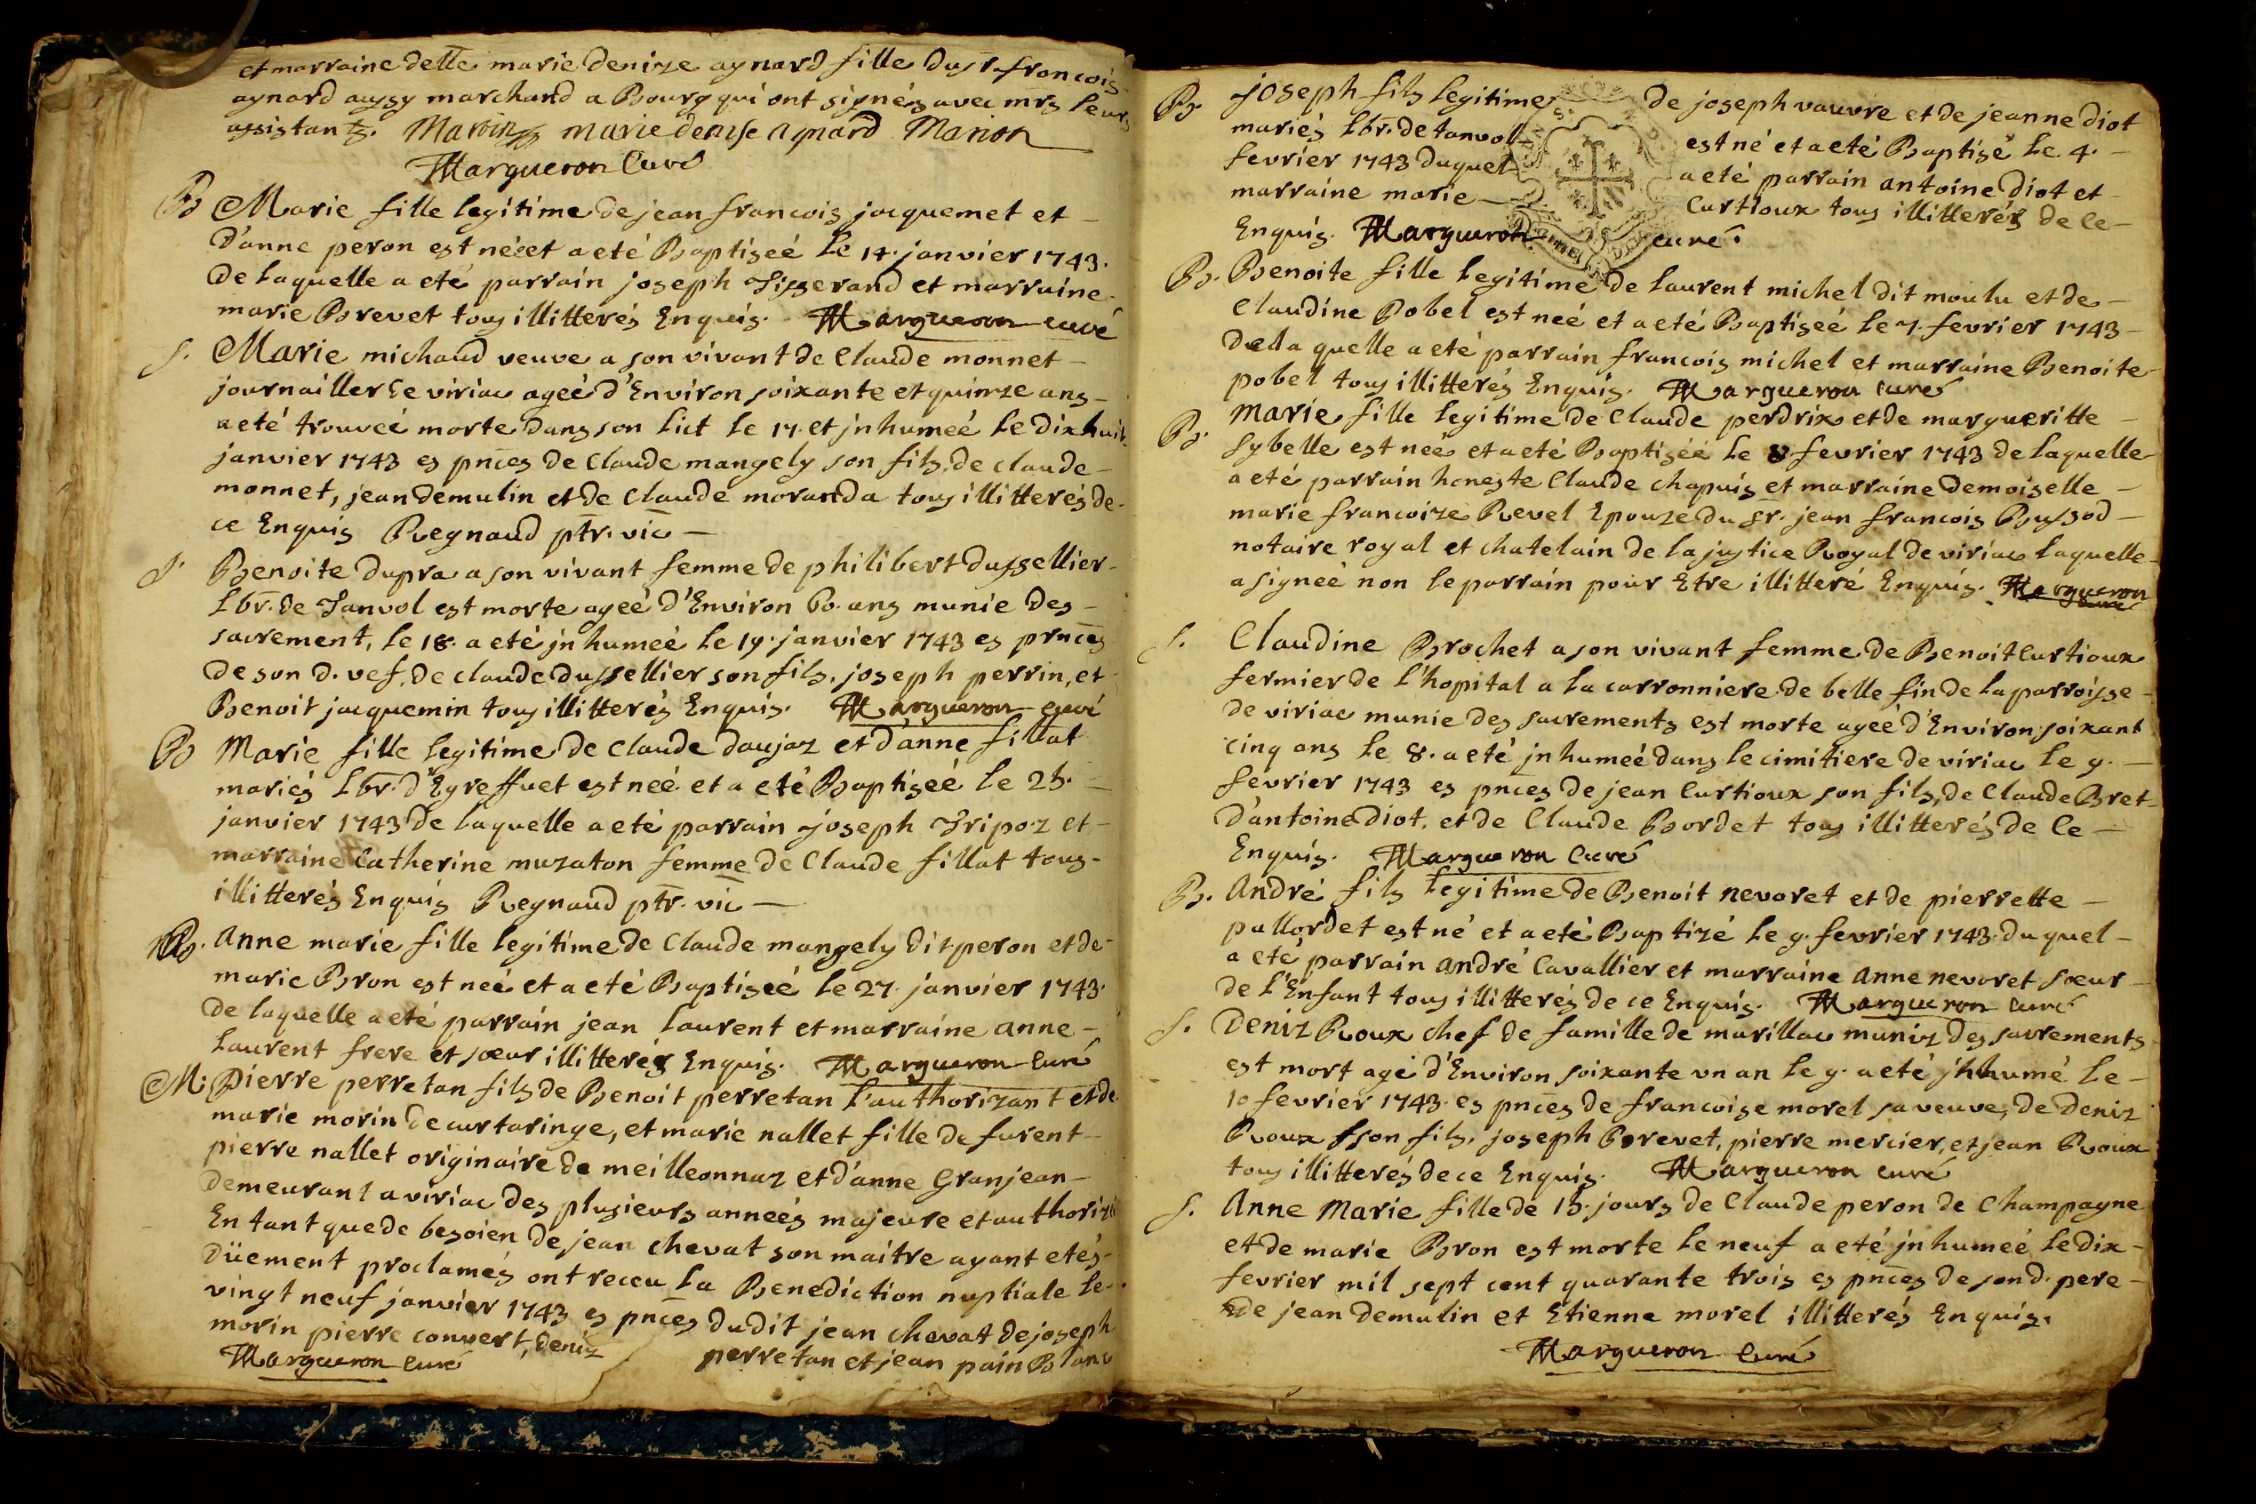 et marraine delle marie denize aynard fille du sr francois
aynard aussy marchand a Bourg qui ont signés avec mrs leurs
assistants. Marbin marie denise aynard Marion
Margueron Curé
B Marie fille legitime de jean francois jacquemet et
d'anne peron est néeet a eté Baptiseé le 14. janvier 1743.
de laquelle a eté parrain joseph Tisserand et marraine
marie Brevet tous illitterés Enquis. Margueron curé
S. Marie michaud veuve a son vivant de Claude monnet
journaillier de viriac ageé d'Environ soixante et quinze ans
a eté trouveé morte dans son lict le 17. et jnhumeé le dixhuit
janvier 1743 es pnces de Claude mangely son fils, de claude
monnet, jean demulin et de Claude moranda tous illitterés de
ce Enquis Regnaud ptr. vic
S. Benoite dupra a son vivant femme de philibert dussellier
Lbr. de Tanvol est morte ageé d'Environ 60. ans munie des
sacrement, le 18. a eté jnhumeé le 19. janvier 1743 es prnces
de son d. vef, de claude dussellier son fils, joseph perrin, et
Benoit jacquemin tous illitterés Enquis. Margueron curé
B Marie fille legitime de Claude daujaz et d'anne fillat
mariés Lbr. d'Egreffuet est neé et a eté Baptiseé le 25.
janvier 1743 de laquelle a eté parrain joseph Tripoz et
marraine Catherine muzaton femme de Claude fillat tous
illitterés Enquis Regnaud ptr. vic
B. Anne marie fille legitime de Claude mangely dit peron et de
marie Bron est neé et a eté Baptiseé le 27. janvier 1743.
de laquelle a eté parrain jean Laurent et marraine anne
Laurent frere et sœur illitterés Enquis. Margueron Curé
M. Pierre perretan fils de Benoit perretan l'authorizant et de
marie morin de curtaringe, et marie nallet fille de furent
pierre nallet originaire de meilleonnaz et d'anne Granjean
demeurant a viriac des plusieurs anneés majeure et authorizé
En tant que de besoien de jean chevat son maitre ayant etés
düement proclamés ont receu la Benediction nuptiale le
vingt neuf janvier 1743 es pnces dudit jean chevat de joseph
morin pierre convert, deniz perretan et jean pain Blanc
Margueron Curé
B. joseph fils legitime de joseph vauvre et de jeanne diot
mariés Lbr. de tanvol est né et a eté Baptisé le 4.
fevrier 1743 duquel a eté parrain antoine diot et
marraine marie Curtioux tous illitterés de ce
Enquis. Margueron curé.
B. Benoite fille legitime de laurent michel dit moulu et de
Claudine Pobel est neé et a eté Baptiseé le 7. fevrier 1743
dela quelle a eté parrain francois michel et marraine Benoite
pobel tous illitterés Enquis. Margueron curé
B. marie fille legitime de Claude perdrix et de margueritte
Sybelle est neé et a eté Baptiseé le 8 fevrier 1743 de laquelle
a eté parrain honeste Claude chapuis et marraine demoiselle
marie francoize Revel Epouze du sr. jean francois Bussod
notaire royal et chatelain de la justice Royal de viriac laquelle
a signeé non le parrain pour Etre illitteré Enquis. Margueron
curé
S. Claudine Brochet a son vivant femme de Benoit Curtioux
fermier de l'hopital a la carronniere de belle fin de la parroisse
de viriac munie des sacrements est morte ageé d'Environ soixant
cinq ans le 8. a eté jnhumeé dans le cimitiere de viriac le 9.
fevrier 1743 es pnces de jean Curtioux son fils, de Claude Bret
d'antoine diot, et de Claude Bordet tous illitterés de ce
Enquis. Margueron Curé
B. andré fils legitime de Benoit nevoret et de pierrette
pallordet est né et a eté Baptizé le 9. fevrier 1743. duquel
a eté parrain andré Cavallier et marraine anne nevoret sœur
de l'Enfant tous illitterés de ce Enquis. Margueron curé
S. Deniz Roux chef de famille de marillac muniz des sacrements
est mort agé d'Environ soixante vn an le 9. a eté jnhumé le
10 fevrier 1743. es pnces de francoise morel sa veuve, de deniz
Roux son fils, joseph Brevet, pierre mercier, et jean Roux
tous illitterés de ce Enquis. Margueron curé
S. Anne Marie fille de 15. jours de Claude peron de Champagne
et de marie Bron est morte le neuf a eté jnhumeé le dix
fevrier mil sept cent quarante trois es pnces de son d. pere
de jean demulin et Etienne morel illitterés Enquis.
Margueron Curé